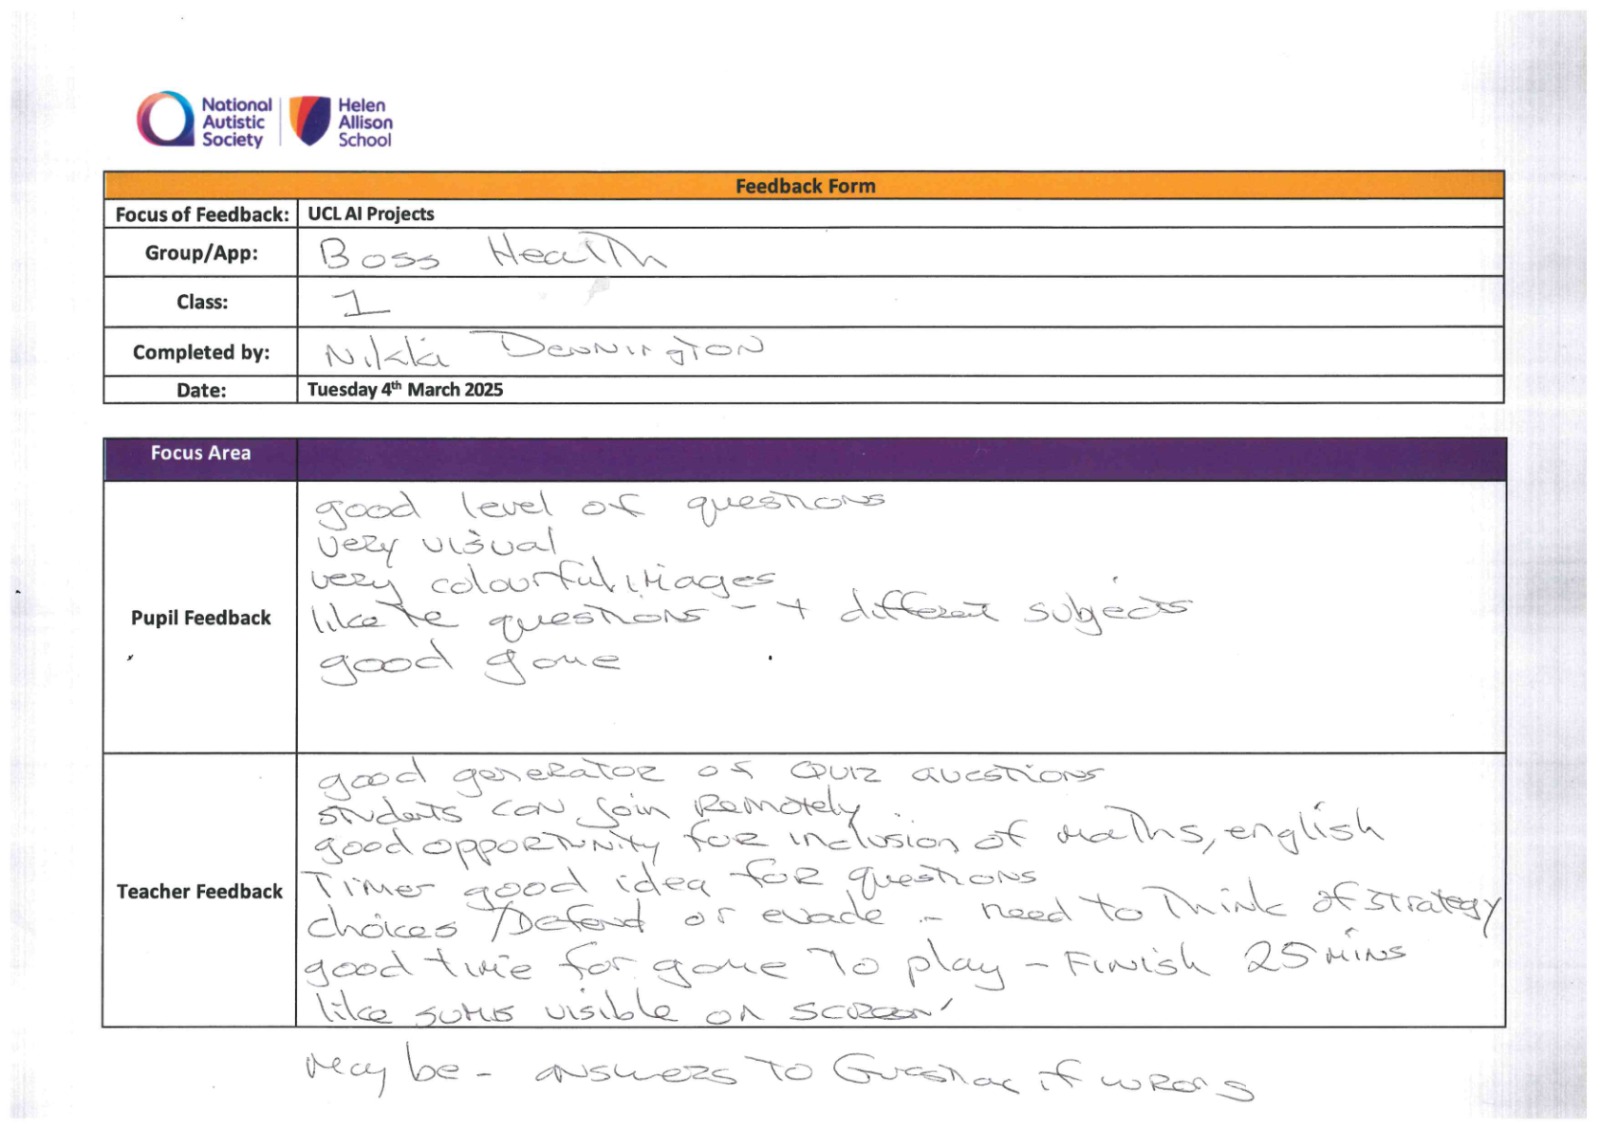 National Autistic Society
Helen Allison School
Feedback Form
Focus of Feedback: UCL AI Projects
Group/App: Boss Health
Class: 1
Completed by: Nikki Dennington
Date: Tuesday 4th March 2025
Focus Area
Pupil Feedback
good level of questions
very visual
very colourful images
like the questions - + different subjects
good game
Teacher Feedback
good generator of quiz questions
students can join remotely
good opportunity for inclusion of maths, english
Timer good idea for questions
choices / Defend or evade - need to think of strategy
good time for game to play - Finish 25 mins
like sums visible on screen
May be - answers to question if wrong